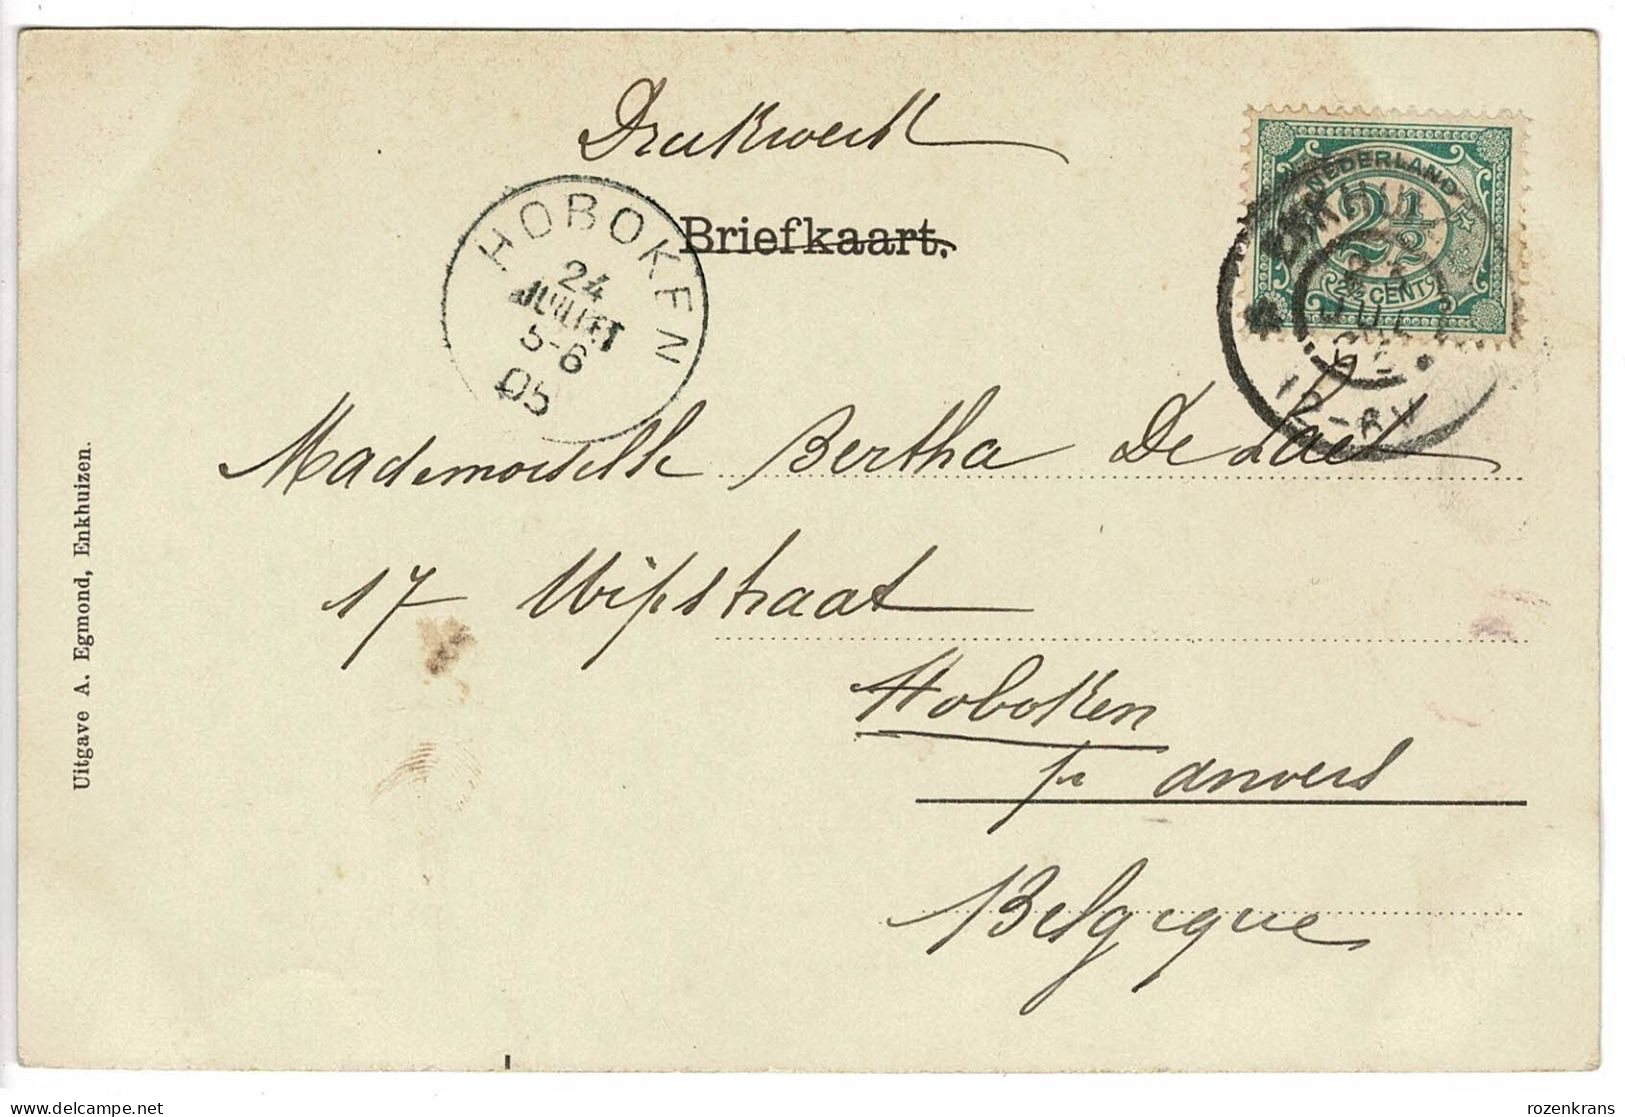 Drukwerk
Briefkaart.
HOBOKEN
24
JUILLET
5-6
05
NEDERLAND
2½
2½ CENT
ENKHUI
JUL
Mademoiselle Bertha De Laet
17 Wipstraat
Hoboken
pr Anvers
Belgique
Uitgave A. Egmond, Enkhuizen.
rozenkrans
delcampe.net